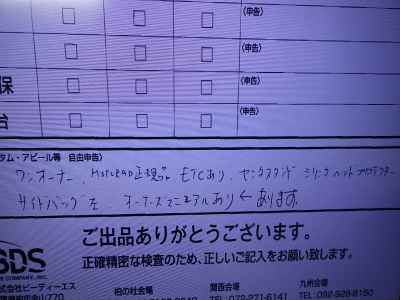 (申告)
(申告)
保 (申告)
台 (申告)
タム・アピール等 自由申告)
ワンオーナー、MOTORAD正規品 ETCあり、センタスタンド シリンダヘッドプロテクター
サイドバッグ 左 オーナーズマニュアルあり ← あります。
ご出品ありがとうございます。
正確精密な検査のため、正しいご記入をお願い致します。
SDS
株式会社ビーディーエス
柏の杜会場
関西会場
TEL:072-271-6141
九州会場
TEL:092-928-8150